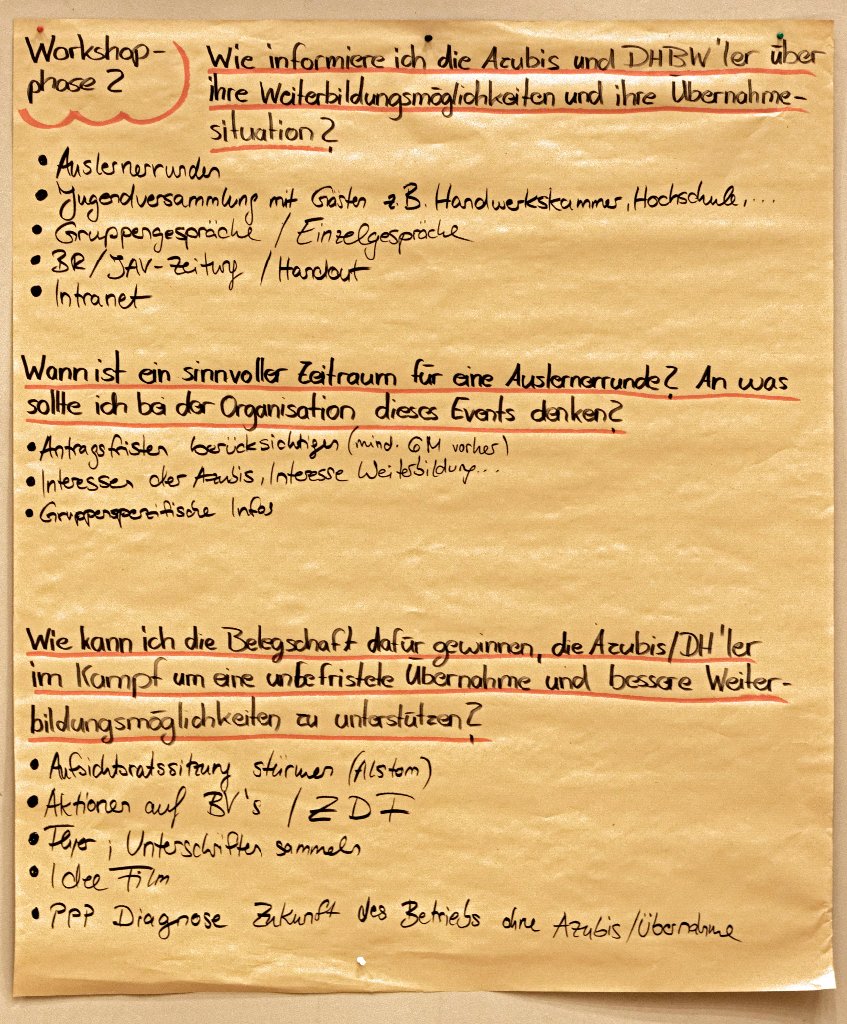 Workshop-
phase 2
Wie informiere ich die Azubis und DHBW'ler über
ihre Weiterbildungsmöglichkeiten und ihre Übernahme-
situation?
• Auslernerrunden
• Jugendversammlung mit Gästen z.B. Handwerkskammer, Hochschule, ...
• Gruppengespräche / Einzelgespräche
• BR/JAV-Zeitung / Handout
• Intranet
Wann ist ein sinnvoller Zeitraum für eine Auslernerrunde? An was
sollte ich bei der Organisation dieses Events denken?
• Antragsfristen berücksichtigen (mind. 6M vorher)
• Interessen der Azubis, Interesse Weiterbildung...
• Gruppenspezifische Infos
Wie kann ich die Belegschaft dafür gewinnen, die Azubis/DH'ler
im Kampf um eine unbefristete Übernahme und bessere Weiter-
bildungsmöglichkeiten zu unterstützen?
• Aufsichtsratssitzung stürmen (Alstom)
• Aktionen auf BV's / ZDF
• Flyer; Unterschriften sammeln
• Idee Film
• PPP Diagnose Zukunft des Betriebs ohne Azubis/Übernahme